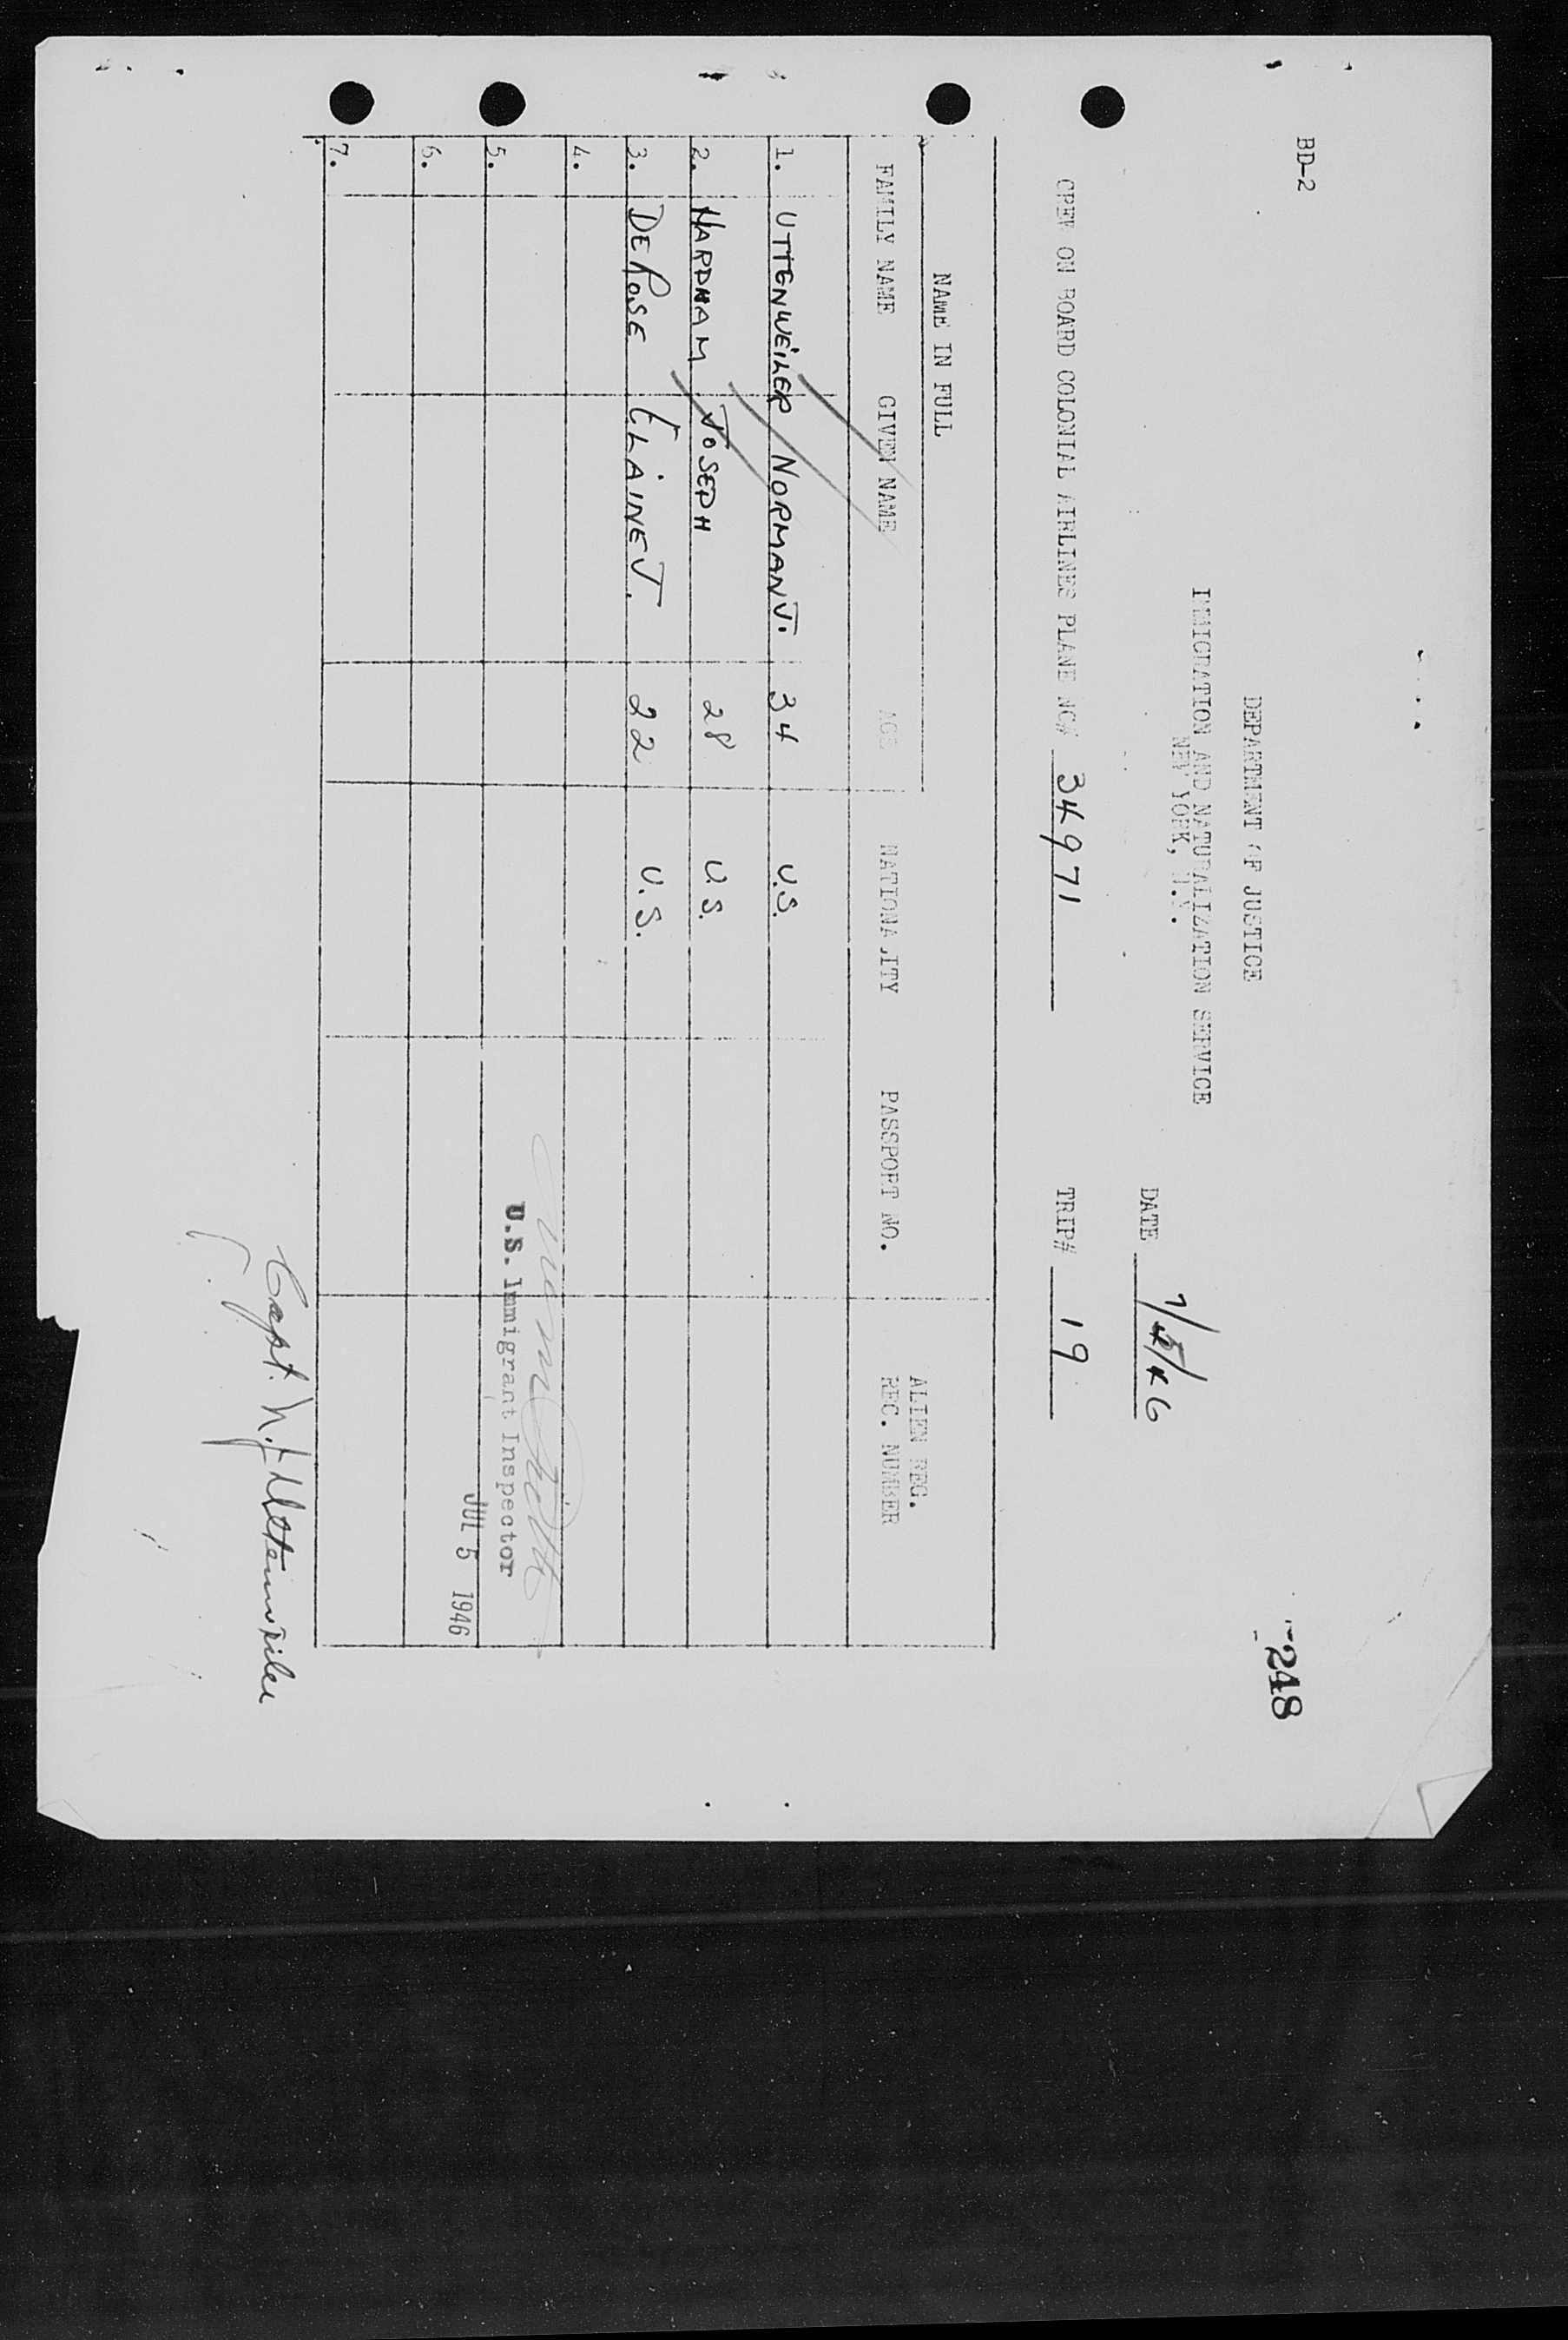 BD-2
248
DEPARTMENT OF JUSTICE
IMMIGRATION AND NATURALIZATION SERVICE
NEW YORK, N.Y.
DATE 7/5/46
CREW ON BOARD COLONIAL AIRLINES PLANE NC# 34971 TRIP# 19
NAME IN FULL
ALIEN REG.
FAMILY NAME GIVEN NAME AGE NATIONALITY PASSPORT NO. REC. NUMBER
1. UTTENWEILER NORMAN J. 34 U.S.
2. HARDHAM JOSEPH 28 U.S.
3. DEROSE ELAINE J. 22 U.S.
4.
5.
U.S. Immigrant Inspector
6.
JUL 5 1946
7.
Capt. N. J. Uttenweiler